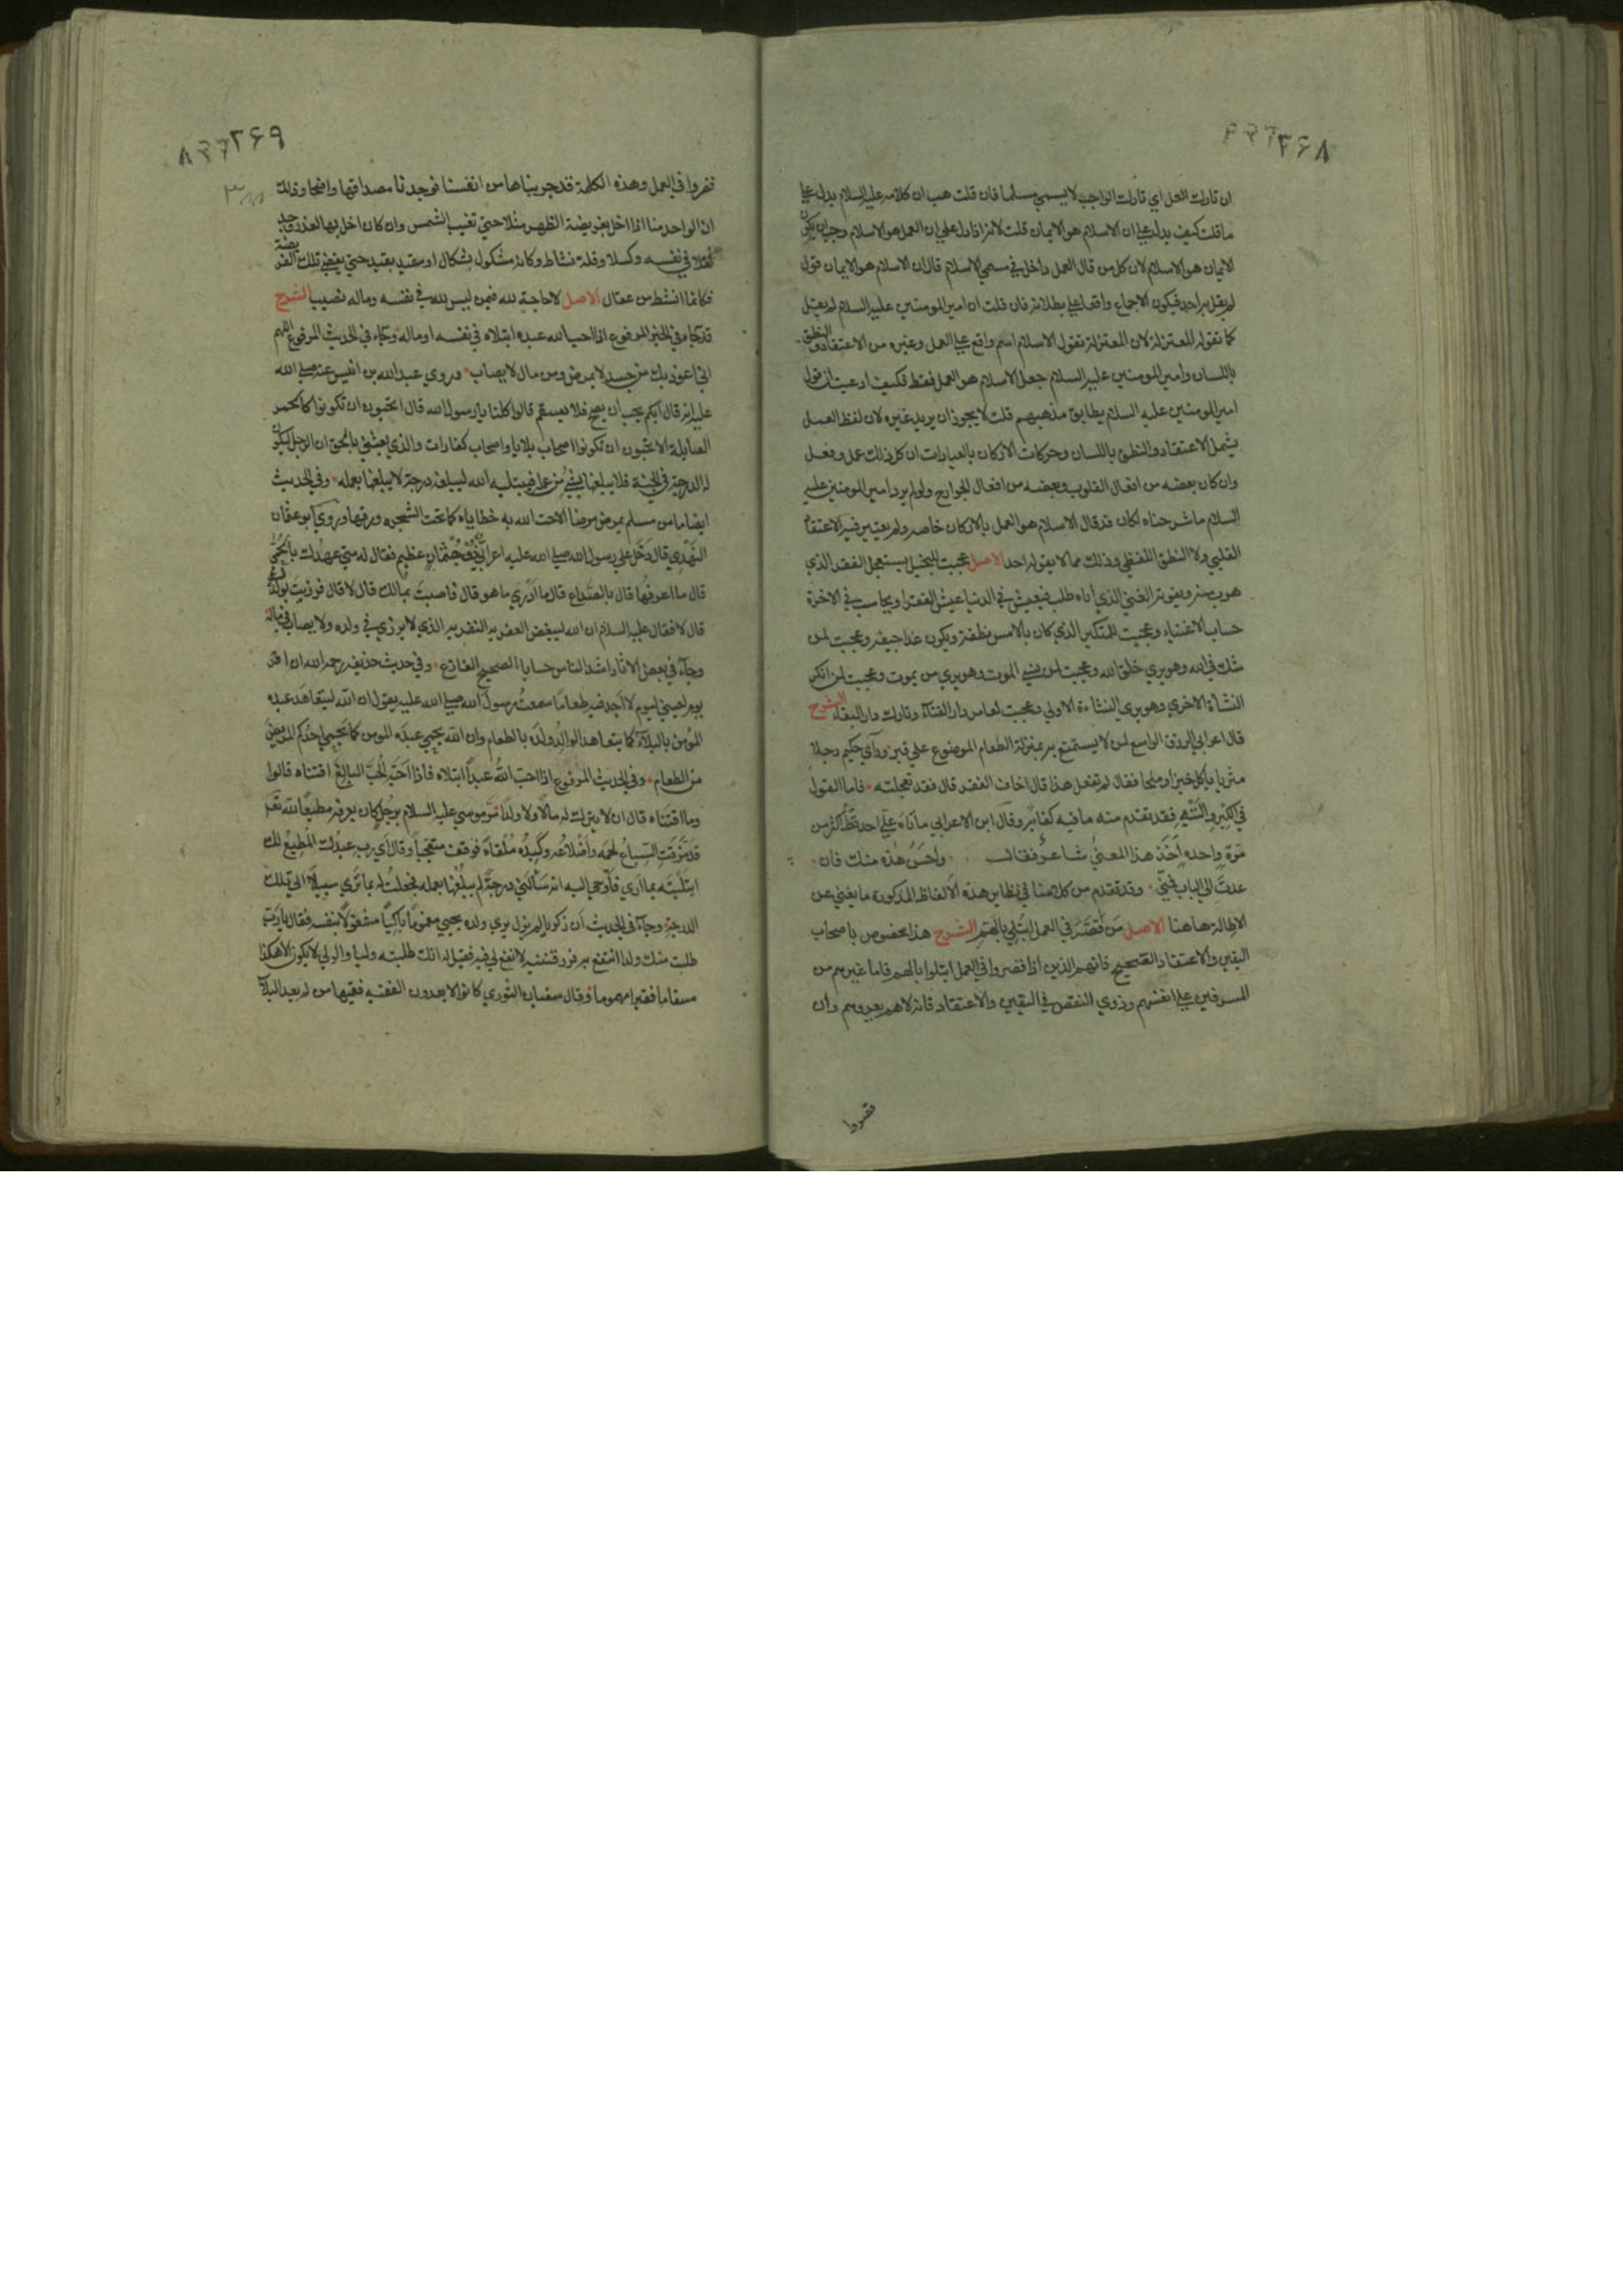 ۲۶۸
ان تارك العمل اي تارك الواجب لا يسمي مسلما فان قلت هب ان كلامه عليه السلام يدل علي
ما قلت كيف يدل علي ان الاسلام هو الايمان قلت لانه اذا دل علي ان العمل هو الاسلام وجب ان يكون
الايمان هو الاسلام لان كل من قال العمل داخل في مسمي الاسلام قال ان الاسلام هو الايمان فالقول
لم يقل به احد فيكون الاجماع واقعا علي بطلانه فان قلت ان امير المومنين عليه السلام لم يقل
كما تقوله المعتزلة لان المعتزلة تقول الاسلام اسم واقع علي العمل وغيره من الاعتقاد والنطق
باللسان وامير المومنين عليه السلام جعل الاسلام هو العمل فقط فكيف ادعيت ان قول
امير المومنين عليه السلام يطابق مذهبهم قلت لا يجوز ان يريد غيره لان لفظ العمل
يشمل الاعتقاد والنطق باللسان وحركات الاركان بالعبادات ان كل ذلك عمل وفعل
وان كان بعضه من افعال القلوب وبعضه من افعال الجوارح ولو لم يرد امير المومنين عليه
السلام ما شرحناه لكان قد قال الاسلام هو العمل بالاركان خاصه ولم يعتبر فيه الاعتقاد
القلبي ولا النطق اللفظي وذلك مما لا يقوله احد الاصل عجبت للبخيل يستعجل الفقر الذي
هرب منه ويفوته الغني الذي اياه طلب فيعيش في الدنيا عيش الفقرا ويحاسب في الاخرة
حساب الاغنياء وعجبت للمتكبر الذي كان بالامس نطفة ويكون غدا جيفه وعجبت لمن
شك في الله وهو يري خلق الله وعجبت لمن نسي الموت وهو يري من يموت وعجبت لمن انكر
النشاة الاخري وهو يري النشاءة الاولي وعجبت لعامر دار الفنآء وتارك دار البقاء الشرح
قال اعرابي الرزق الواسع لمن لا يستمتع به بمنزلة الطعام الموضوع علي قبر وراي حكيم رجلا
مثريا ياكل خبزا وملحا فقال لم تفعل هذا قال اخاف الفقر قال فقد تعجلته فاما القول
في الكبر والتيه فقد تقدم منه ما فيه كفاية وقال ابن الاعرابي ما تاه علي احد قط اكثر من
مرة واحده اخذ هذا المعني شاعر فقال هذه منك فان
عدت الي الباب فمني وقد تقدم من كلامنا في نظاير هذه الالفاظ المذكورة ما يغني عن
الاطالة هاهنا الاصل من قصر في العمل ابتلي بالهم الشرح هذا مخصوص باصحاب
اليقين والاعتقاد الصحيح فانهم الذين اذا قصروا في العمل ابتلوا بالهم فاما غيرهم من
المسرفين علي انفسهم وذوي النقص في اليقين والاعتقاد فانه لا هم يعروهم وان
قصروا
۲۶۹
قصروا في العمل وهذه الكلمة قد جربناها من انفسنا فوجدنا مصداقها واضحا وذلك
ان الواحد منا اذا اخل بفريضة الظهر مثلا حتي تغيب الشمس وان كان اخل بها لعذر وجد
ثقلا في نفسه وكسلا وقلة نشاط وكانه مشكول بشكال او مقيد بقيد حتي يقضي تلك الفريضة
فكانما انشط من عقال الاصل لا حاجة لله فيمن ليس لله في نفسه وماله نصيب الشرح
قد جاء في الخبر المرفوع اذا احب الله عبده ابتلاه في نفسه او ماله وجاء في الحديث المرفوع اللهم
اني اعوذ بك من جسد لا يمرض ومن مال لا يصاب وروي عبد الله بن انيس عنه صلي الله
عليه انه قال ايكم يحب ان يصح فلا يسقم قالوا كلنا يا رسول الله قال اتحبون ان تكونوا كالحمر
الصايلة الا تحبون ان تكونوا اصحاب بلايا واصحاب كفارات والذي بعثني بالحق ان الرجل ليكون
له الدرجة في الجنة فلا يبلغها بشي من عمله فيبتليه الله ليبلغه درجة لا يبلغها بعمله وفي الحديث
ايضا ما من مسلم يمرض مرضا الا حت الله به خطاياه كما تحت الشجره ورقها وروي ابو عثمان
النهدي قال دخل علي رسول الله صلي الله عليه اعرابي ذو جثمان عظيم فقال له متي عهدك بالحمي
قال ما اعرفها قال بالصداع قال ما ادري ما هو قال فاصبت بمالك قال لا قال فرزيت بولدك
قال لا فقال عليه السلام ان الله ليبغض العفريه النفريه الذي لا يرزي في ولده ولا يصاب في ماله
وجاء في بعض الاثار اشد الناس حسابا الصحيح الفارغ وفي حديث حذيفه رحمه الله ان اقر
يوم لعيني ليوم لا اجد فيه طعاما سمعت رسول الله صلي الله عليه يقول ان الله ليتعاهد عبده
المؤمن بالبلآء كما يتعاهد الوالد ولده بالطعام وان الله يحمي عبده المومن كما يحمي احدكم المريض
من الطعام وفي الحديث المرفوع اذا احب الله عبدا ابتلاه فاذا احبه الحب البالغ اقتناه قالوا
وما اقتناه قال ان لا يترك له مالا ولا ولدا مر موسي عليه السلام برجل كان يعرفه مطيعا لله تعالي
قد مزقت السباع لحمه واضلاعه وكبده ملقاة فوقف متعجبا وقال اي رب عبدك المطيع لك
ابتليته بما اري فاوحي اليه انه سالني درجة لم يبلغها بعمله فجعلت له بما تري سبيلا الي تلك
الدرجة وجاء في الحديث ان زكريا لم يزل يري ولده يحيي مغموما باكيا مشغولا بنفسه فقال يا رب
طلبت منك ولدا انتفع به فرزقتنيه لا نفع لي فيه فقيل له انك طلبته وليا والولي لا يكون الا هكذا
مسقاما فقيرا مهموما وقال سفيان الثوري كانوا لا يعدون الفقيه فقيها من لم يعد البلآء